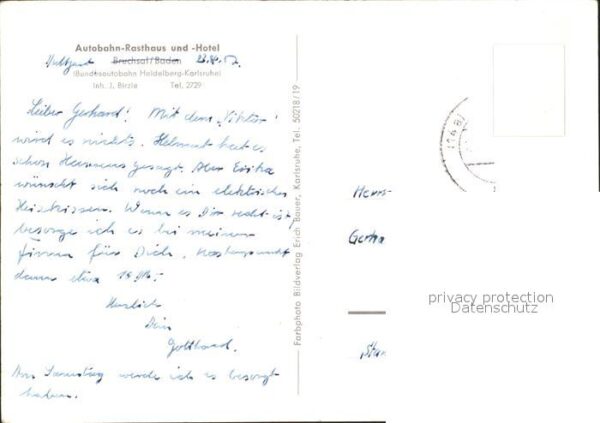 Autobahn-Rasthaus und -Hotel
Stuttgart Bruchsal/Baden
(Bundesautobahn Heidelberg-Karlsruhe)
Inh. J. Birzle Tel. 2729
Lieber Gerhard! Mit dem "Viktor"
wird es nichts. Helmut hat es
schon Hermann gesagt. Aber Erika
wünscht sich noch ein elektrisches
Heizkissen. Wenn es Dir recht ist,
besorge ich es bei meiner
Firma für Dich. Kostenpunkt
dann etwa 19 DM.-
Herzlich
Dein
Gotthard.
Am Samstag werde ich es besorgt
haben.
Farbphoto Bildverlag Erich Bauer, Karlsruhe, Tel. 50218/19
Herrn
Gerha
privacy protection
Datenschutz